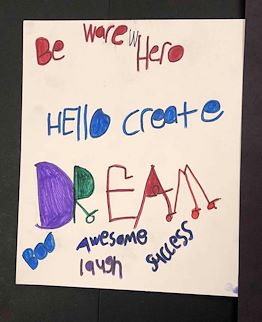 Be ware Hero
HEllo create
DREAM
Boo awesome success
laugh